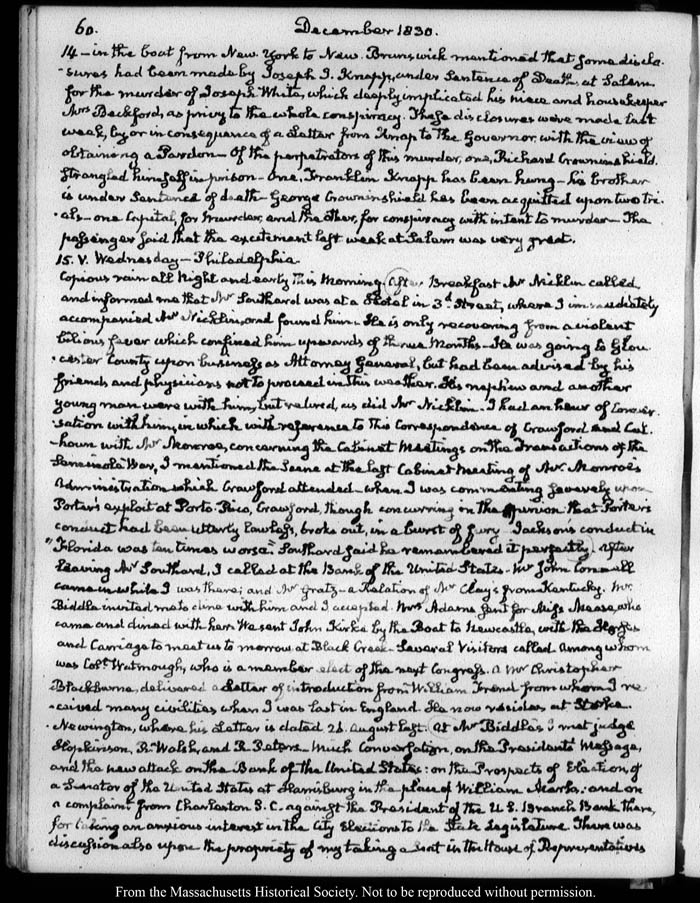 60.
December 1830.
14 – in the boat from New York to New Brunswick mentioned that some disclo-
-sures had been made by Joseph J. Knapp, under Sentence of Death, at Salem
for the murder of Joseph White, which deeply implicated his niece and housekeeper
Mrs Beckford, as privy to the whole conspiracy. These disclosures were made last
week, by or in consequence of a Letter from Knap to the Governor, with the view of
obtaining a Pardon – Of the perpetrators of this murder, one, Richard Crowninshield.
Strangled himself in prison – One, Franklin Knapp has been hung – his brother
is under Sentence of death – George Crowninshield has been acquitted upon two tri-
-als – one Capital, for Murder, and the other, for conspiracy with intent to murder – The
passenger said that the excitement last week at Salem was very great.
15. V. Wednesday – Philadelphia
Copious rain all Night and early this Morning. After Breakfast Mr Nicklin called,
and informed me that Mr Southard was at a Hotel in 3d. Street, where I immediately
accompanied Mr Nicklin, and found him – He is only recovering from a violent
bilious fever which confined him upwards of three Months – He was going to Glou-
-cester County upon business as Attorney General, but had been advised by his
friends and physicians not to proceed in this weather. His nephew and another
young man were with him, but retired, as did Mr Nicklin. I had an hour of Conver-
sation with him, in which with reference to this Correspondence of Crawford and Cal-
-houn with Mr Monroe, concerning the Cabinet Meetings on the Transactions of the
Seminole War, I mentioned the Scene at the last Cabinet Meeting of Mr. Monroe's
Administration which Crawford attended – when I was commenting severely upon
Porter's exploit at Porto-Rico, Crawford, though concurring in the opinion that Porter's
conduct had been utterly lawless, broke out, in a burst of fury "Jackson's conduct in
"Florida was ten times worse." Southard said he remembered it perfectly. After
leaving Mr Southard, I called at the Bank of the United States. Mr John Connell
came in while I was there; and Mr Gratz – a Relation of Mr Clay's from Kentucky. Mr
Biddle invited me to dine with him and I accepted. Mrs Adams sent for Miss Mease, who
came and dined with her. We sent John Kirke by the Boat to Newcastle, with the Horses
and Carriage to meet us to morrow at Black Creek – Several Visitors called among whom
was Coll. Watmough, who is a member elect of the next Congress. A Mr Christopher
Blackburne, delivered a Letter of introduction from William Frend from whom I re-
-ceived many civilities when I was last in England. He now resides at Stoke
-Newington, where his Letter is dated 21. August last. At Mr Biddle's I met judge
Hopkinson, R. Walsh, and R. Peters – Much Conversation, on the President's Message,
and the new attack on the Bank of the United States: on the Prospects of Election, of
a Senator of the United States at Harrisburg in the place of William Marks: and on
a complaint from Charleston S.C. against the President of the U.S. Branch Bank there,
for taking an anxious interest in the City Elections to the State Legislature. There was
discussion also upon the propriety of my taking a Seat in the House of Representatives
From the Massachusetts Historical Society. Not to be reproduced without permission.